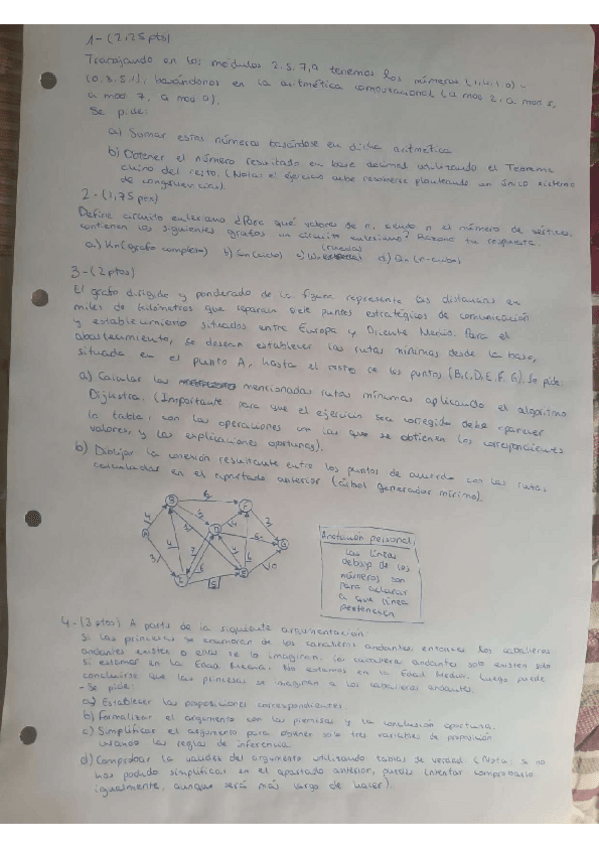 1-(2,25 pts)
Trabajando en los módulos 2,5,7,9 tenemos los números (1,4,1,0)-
(0,3,5,1), basándonos en la aritmética computacional (a mod 2, a mod 5,
a mod 7, a mod 9).
Se pide:
a) Sumar estos números basándose en dicha aritmética
b) Obtener el número resultado en base decimal utilizando el Teorema
chino del resto. (Nota: el ejercicio debe resolverse planteando un único sistema
de congruencias).
2-(1,75 pts)
Define circuito euleriano ¿Para qué valores de n, siendo n el número de vértices,
contienen los siguientes grafos un circuito euleriano? Razona tu respuesta.
a) Kn (grafo completo) b) Cn (ciclo) c) Wn (ruedas) d) Qn (n-cubo)
3-(2 ptos)
El grafo dirigido y ponderado de la figura representa las distancias en
miles de kilómetros que separan siete puntos estratégicos de comunicación
y establecimiento situados entre Europa y Oriente Medio. Para el
abastecimiento, se desean establecer las rutas mínimas desde la base,
situada en el punto A, hasta el resto de los puntos (B,C,D,E,F,G). Se pide:
a) Calcular las mencionadas rutas mínimas aplicando el algoritmo
Dijkstra. (Importante: para que el ejercicio sea corregido debe aparecer
la tabla, con las operaciones con las que se obtienen los correspondientes
valores, y las explicaciones oportunas).
b) Dibujar la conexión resultante entre los puntos de acuerdo con las rutas
calculadas en el apartado anterior (árbol generador mínimo).
Anotación personal:
Las líneas
debajo de los
números son
para aclarar
a que línea
pertenecen
4-(3 ptos) A partir de la siguiente argumentación:
Si las princesas se enamoran de los caballeros andantes, entonces los caballeros
andantes existen o ellas se lo imaginan. Los caballeros andantes solo existen
si estamos en la Edad Media. No estamos en la Edad Media. Luego puede
concluirse que las princesas se imaginan a los caballeros andantes.
- Se pide:
a) Establecer las proposiciones correspondientes.
b) Formalizar el argumento con las premisas y la conclusión oportuna.
c) Simplificar el argumento para obtener solo tres variables de proposición
usando las reglas de inferencia.
d) Comprobar la validez del argumento utilizando tablas de verdad (Nota: si no
has podido simplificar en el apartado anterior, puedes intentar comprobarlo
igualmente, aunque será más largo de hacer).